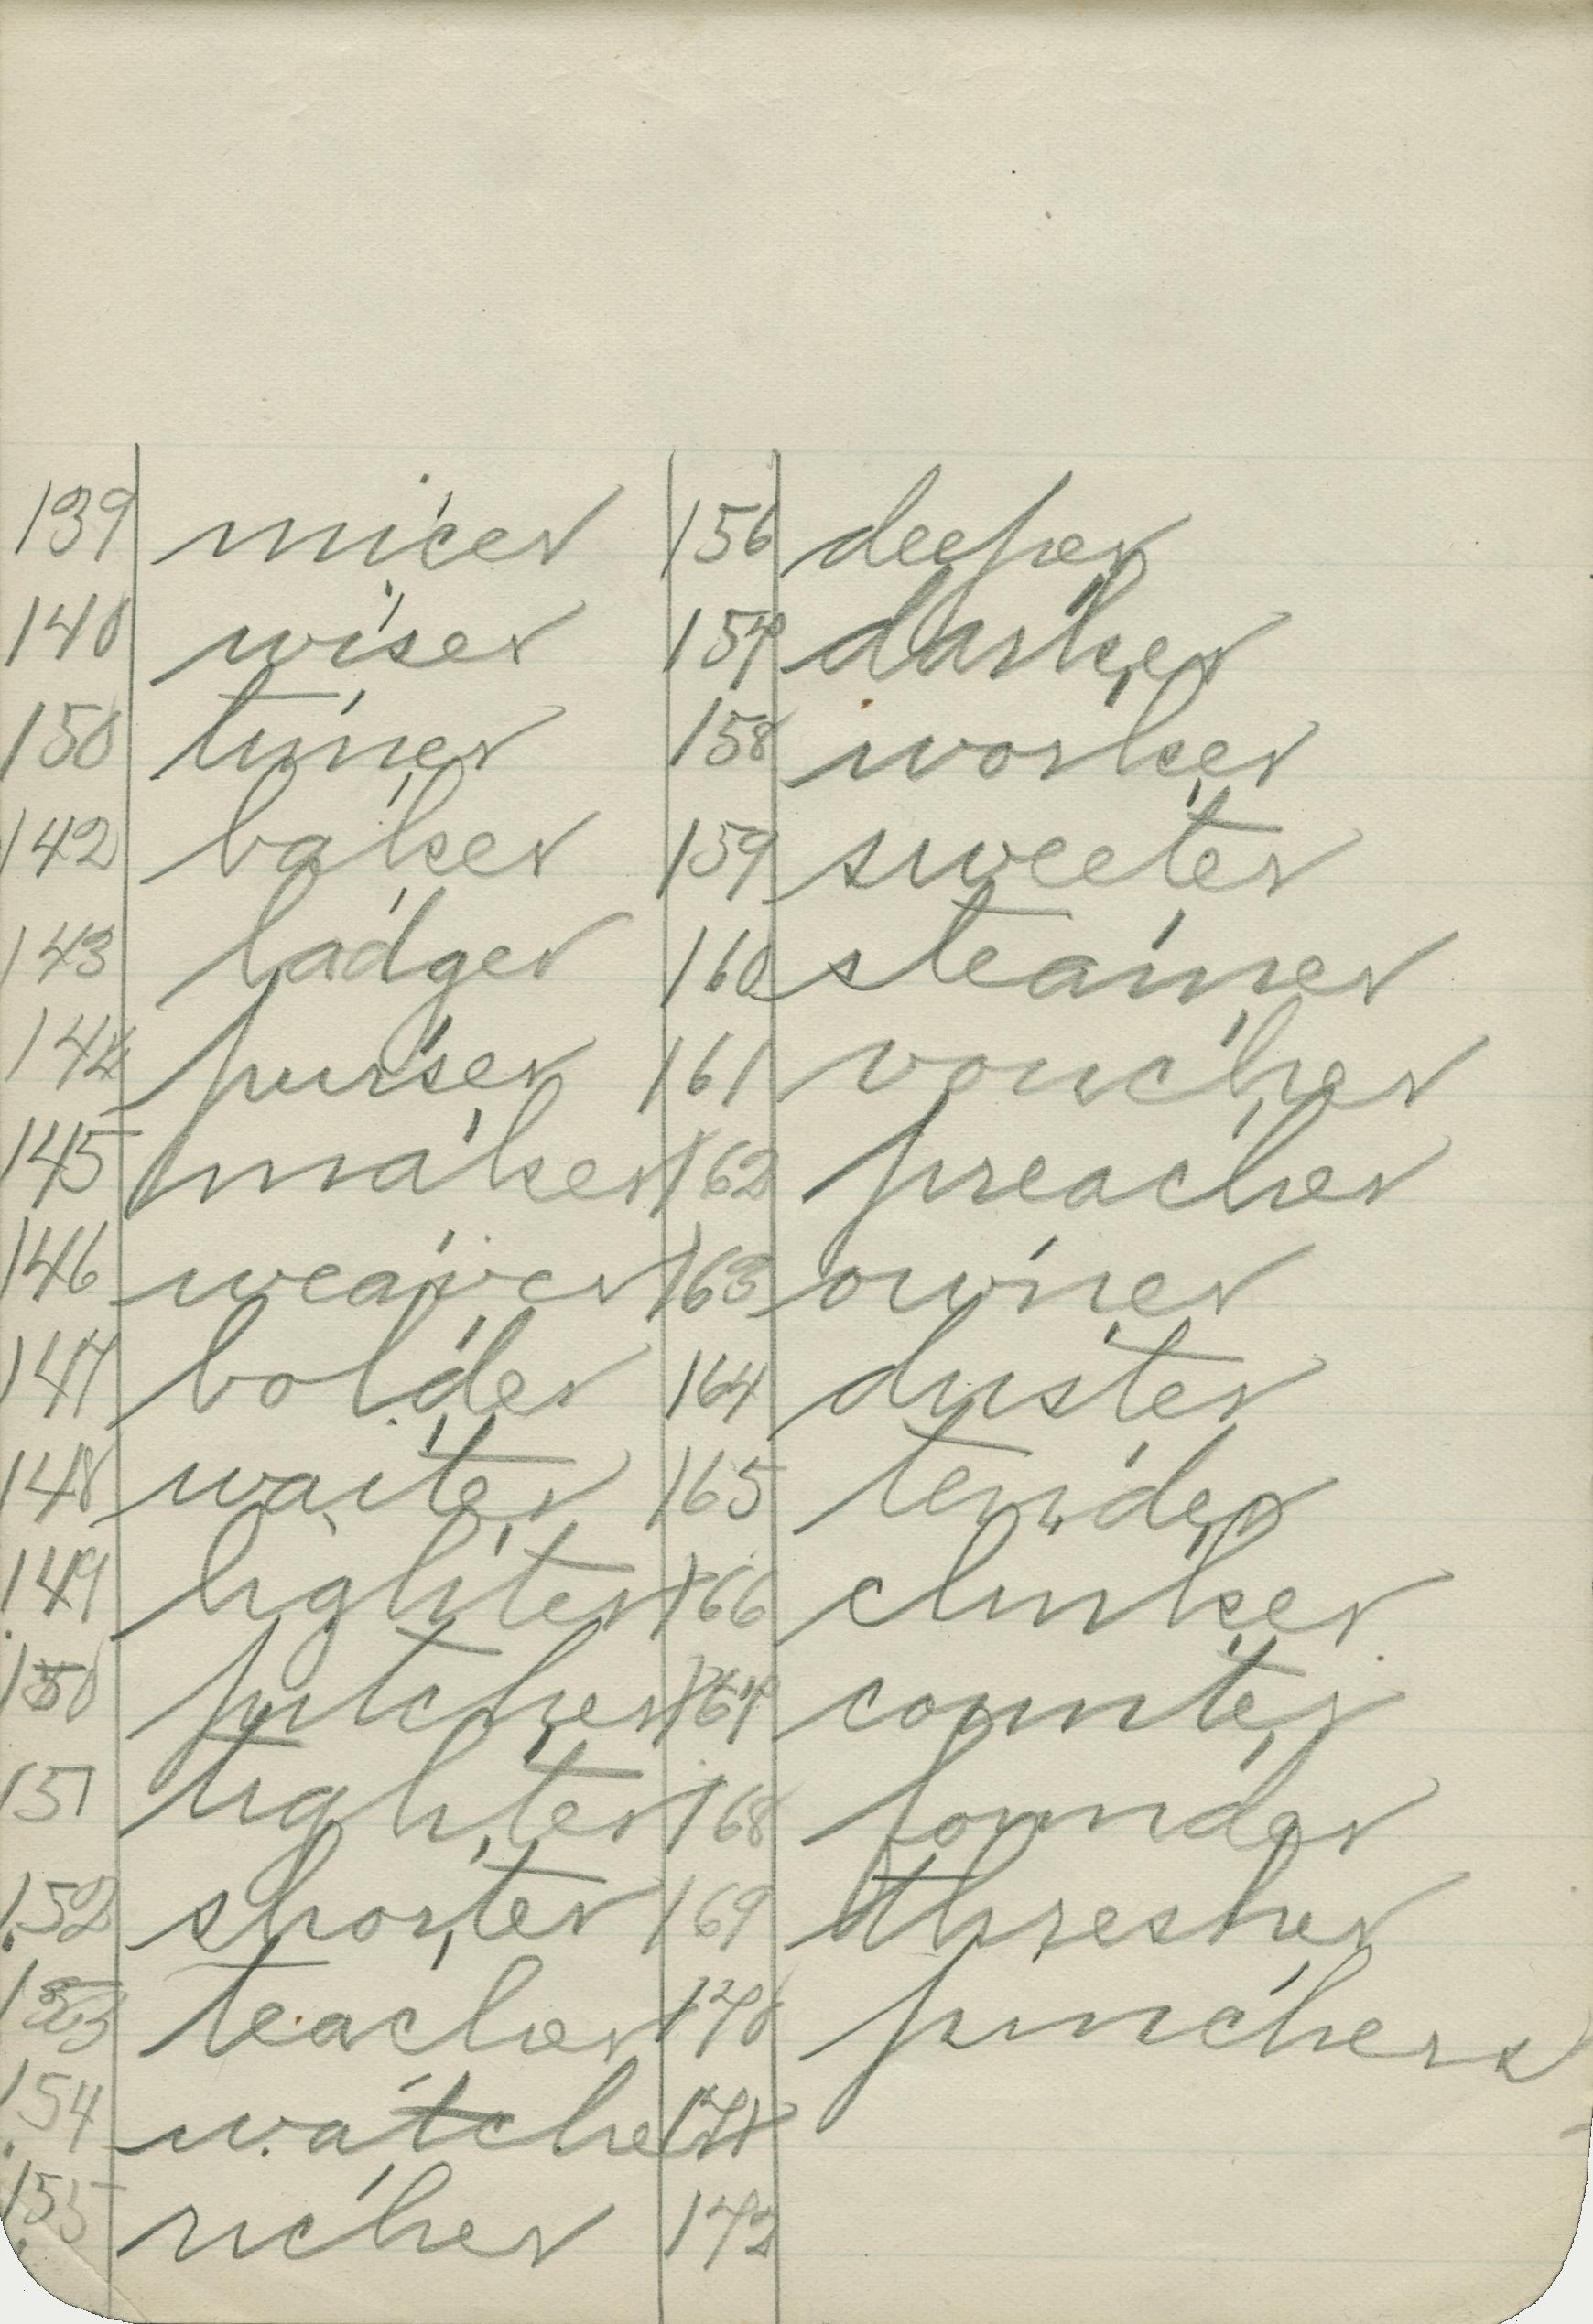 139 nicer
140 wiser
150 timer
142 baker
143 badger
144 purser
145 maker
146 weaver
147 bolder
148 waiter
149 lighter
150 pitcher
151 tighter
152 shorter
153 teacher
154 watcher
155 richer
156 deeper
157 darker
158 worker
159 sweeter
160 steamer
161 voucher
162 preacher
163 owner
164 duster
165 tender
166 clinker
167 counter
168 founder
169 thresher
170 pinchers
171
172